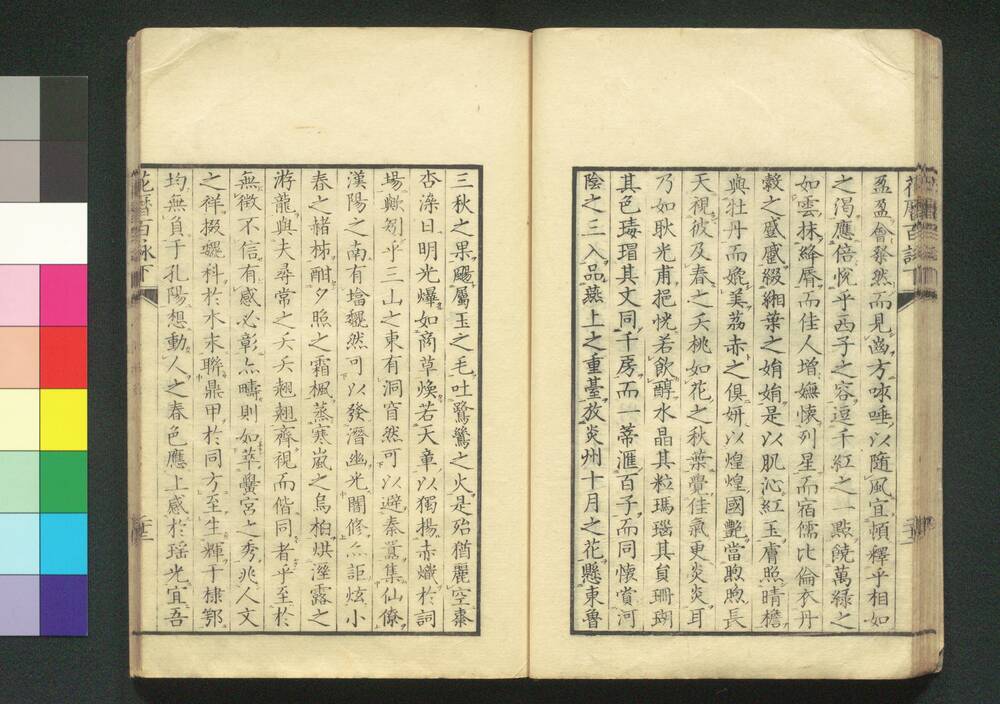 盈盈會粲然而見齒方唾以隨風宜頓釋乎相如
之渴應倍悅乎西子之容逗千紅之一點饒萬緑之
如雲抹絳脣而佳人增嫵懷列星而宿儒比倫衣丹
縠之蹙蹙綴緗葉之娟娟是以肌沁紅玉膚照晴檐
與牡丹而媲美荔赤之俱妍以煌煌國艷當煦煦長
天視彼及春之夭桃如花之秋葉賣佳氣更炎炎耳
乃如耿光甫挹恍若飲醇水晶其粒瑪瑙其貟珊瑚
其色瑇瑁其文同千房而一蒂滙百子而同懷賞河
陰之三入品燕上之重臺放炎州十月之花懸東魯
三秋之果屬玉之毛吐鷟之火是殆猶麗空棗
杏染日明光爆如商草煥若天章以獨揚赤熾於詞
場轍芻乎三山之東有洞窅然可以避秦囂集仙僚
漢陽之南有壋然可以發潛幽光闇修亦詎炫小
春之赭柹酣夕照之霜楓蒸寒嵐之烏桕烘溼露之
游龍與夫尋常之夭夭翹翹齊視而偕同者乎至於
無徵不信有感必彰亦疇則如萃黌宮之秀兆人文
之祥掇科於水末聯鼎甲於同方至生輝于棣鄂
均無負于孔陽想動人之春色應上感於瑶光宜吾
花曆百詠下